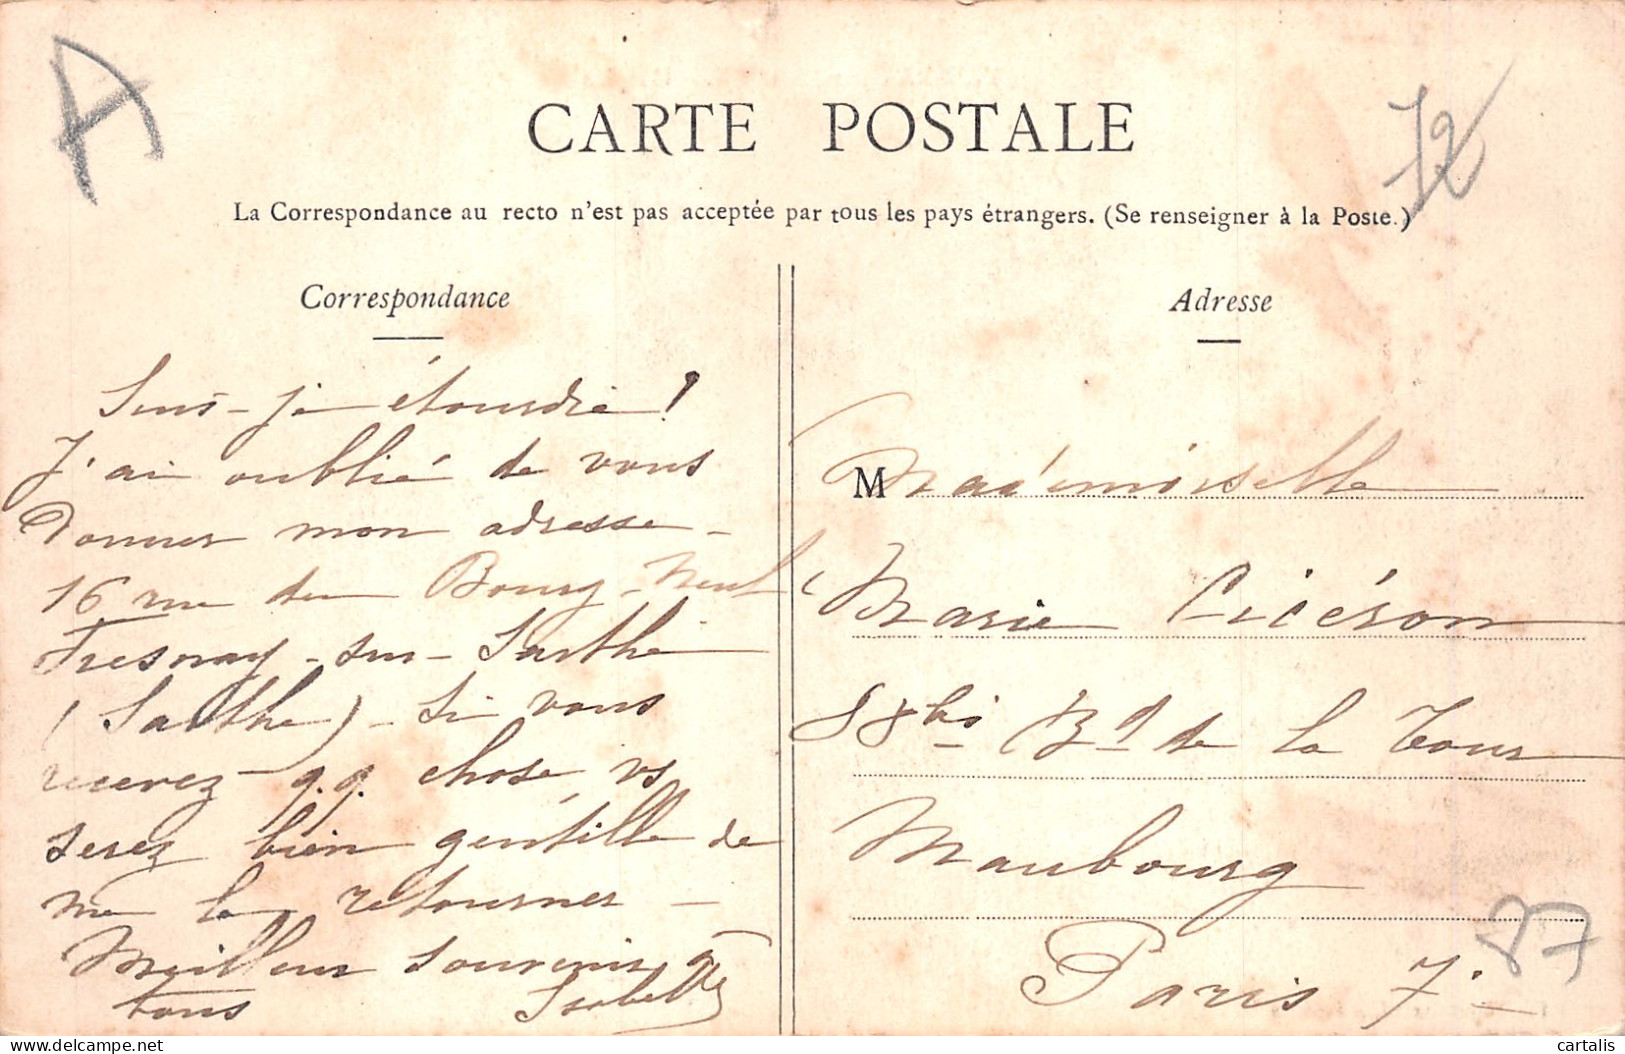 A
72
CARTE POSTALE
La Correspondance au recto n'est pas acceptée par tous les pays étrangers. (Se renseigner à la Poste.)
Correspondance
Suis-je étourdie !
J'ai oublié de vous
donner mon adresse -
16 rue du Bourg-Neuf
Fresnay-sur-Sarthe
(Sarthe) - Si vous
recevez q.q. chose, vs
serez bien gentille de
me le retourner -
Meilleur souvenir à
tous Isabelle
Adresse
M Mademoiselle
Marie Cicéron
88bis Bd de la Tour
Maubourg
Paris 7e
87
cartalis